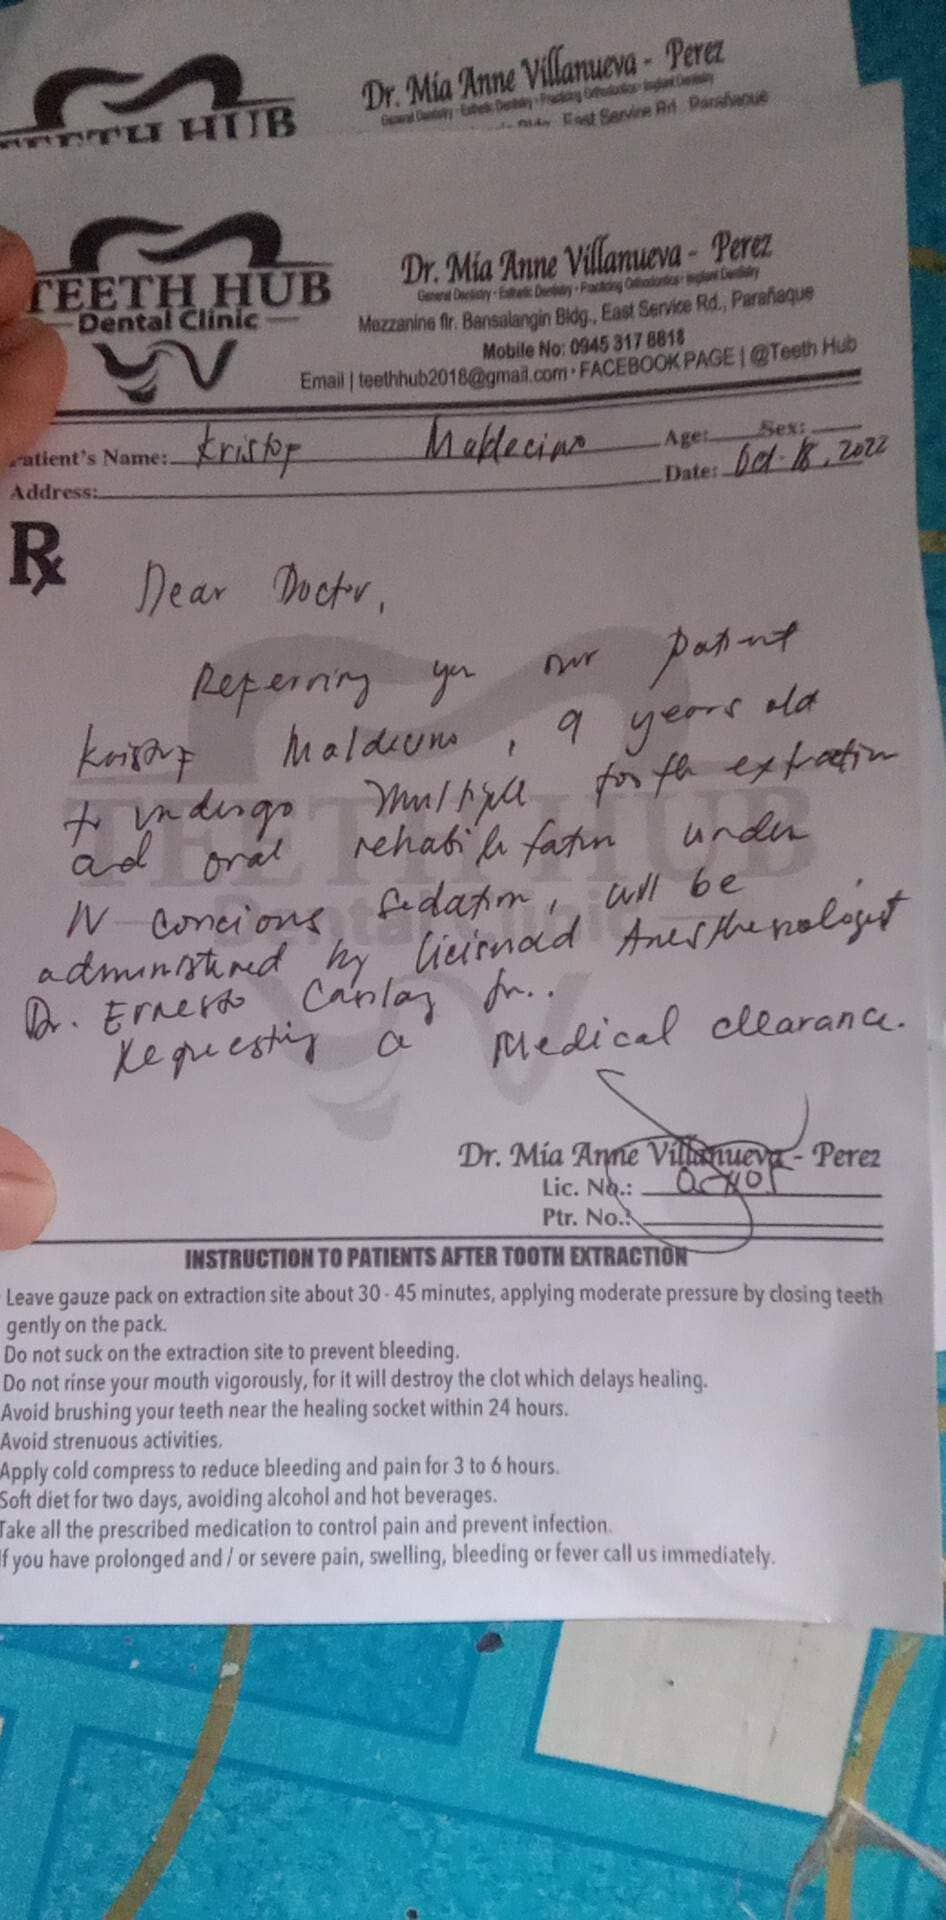 TEETH HUB
Dr. Mia Anne Villanueva - Perez
General Dentistry · Esthetic Dentistry · Practicing Orthodontics · Implant Dentistry
East Service Rd., Parañaque
TEETH HUB
Dental Clinic
Dr. Mia Anne Villanueva - Perez
General Dentistry · Esthetic Dentistry · Practicing Orthodontics · Implant Dentistry
Mezzanine flr. Bansalangin Bldg., East Service Rd., Parañaque
Mobile No: 0945 317 8818
Email | teethhub2018@gmail.com · FACEBOOK PAGE | @Teeth Hub
Patient's Name: Kristof Maldecino Age: Sex:
Address: Date: Oct. 18, 2022
Rx
Dear Doctor,
Referring you our patient
Kristof Maldecino, 9 years old
to undergo multiple tooth extraction
and oral rehabilitation under
IV concious sedation, will be
administered by licisnced Anesthesiologist
Dr. Ernesto Jr..
Requesting a Medical clearance.
Dr. Mia Anne Villanueva - Perez
Lic. No.:
Ptr. No.:
INSTRUCTION TO PATIENTS AFTER TOOTH EXTRACTION
Leave gauze pack on extraction site about 30 - 45 minutes, applying moderate pressure by closing teeth
gently on the pack.
Do not suck on the extraction site to prevent bleeding.
Do not rinse your mouth vigorously, for it will destroy the clot which delays healing.
Avoid brushing your teeth near the healing socket within 24 hours.
Avoid strenuous activities.
Apply cold compress to reduce bleeding and pain for 3 to 6 hours.
Soft diet for two days, avoiding alcohol and hot beverages.
Take all the prescribed medication to control pain and prevent infection.
If you have prolonged and / or severe pain, swelling, bleeding or fever call us immediately.